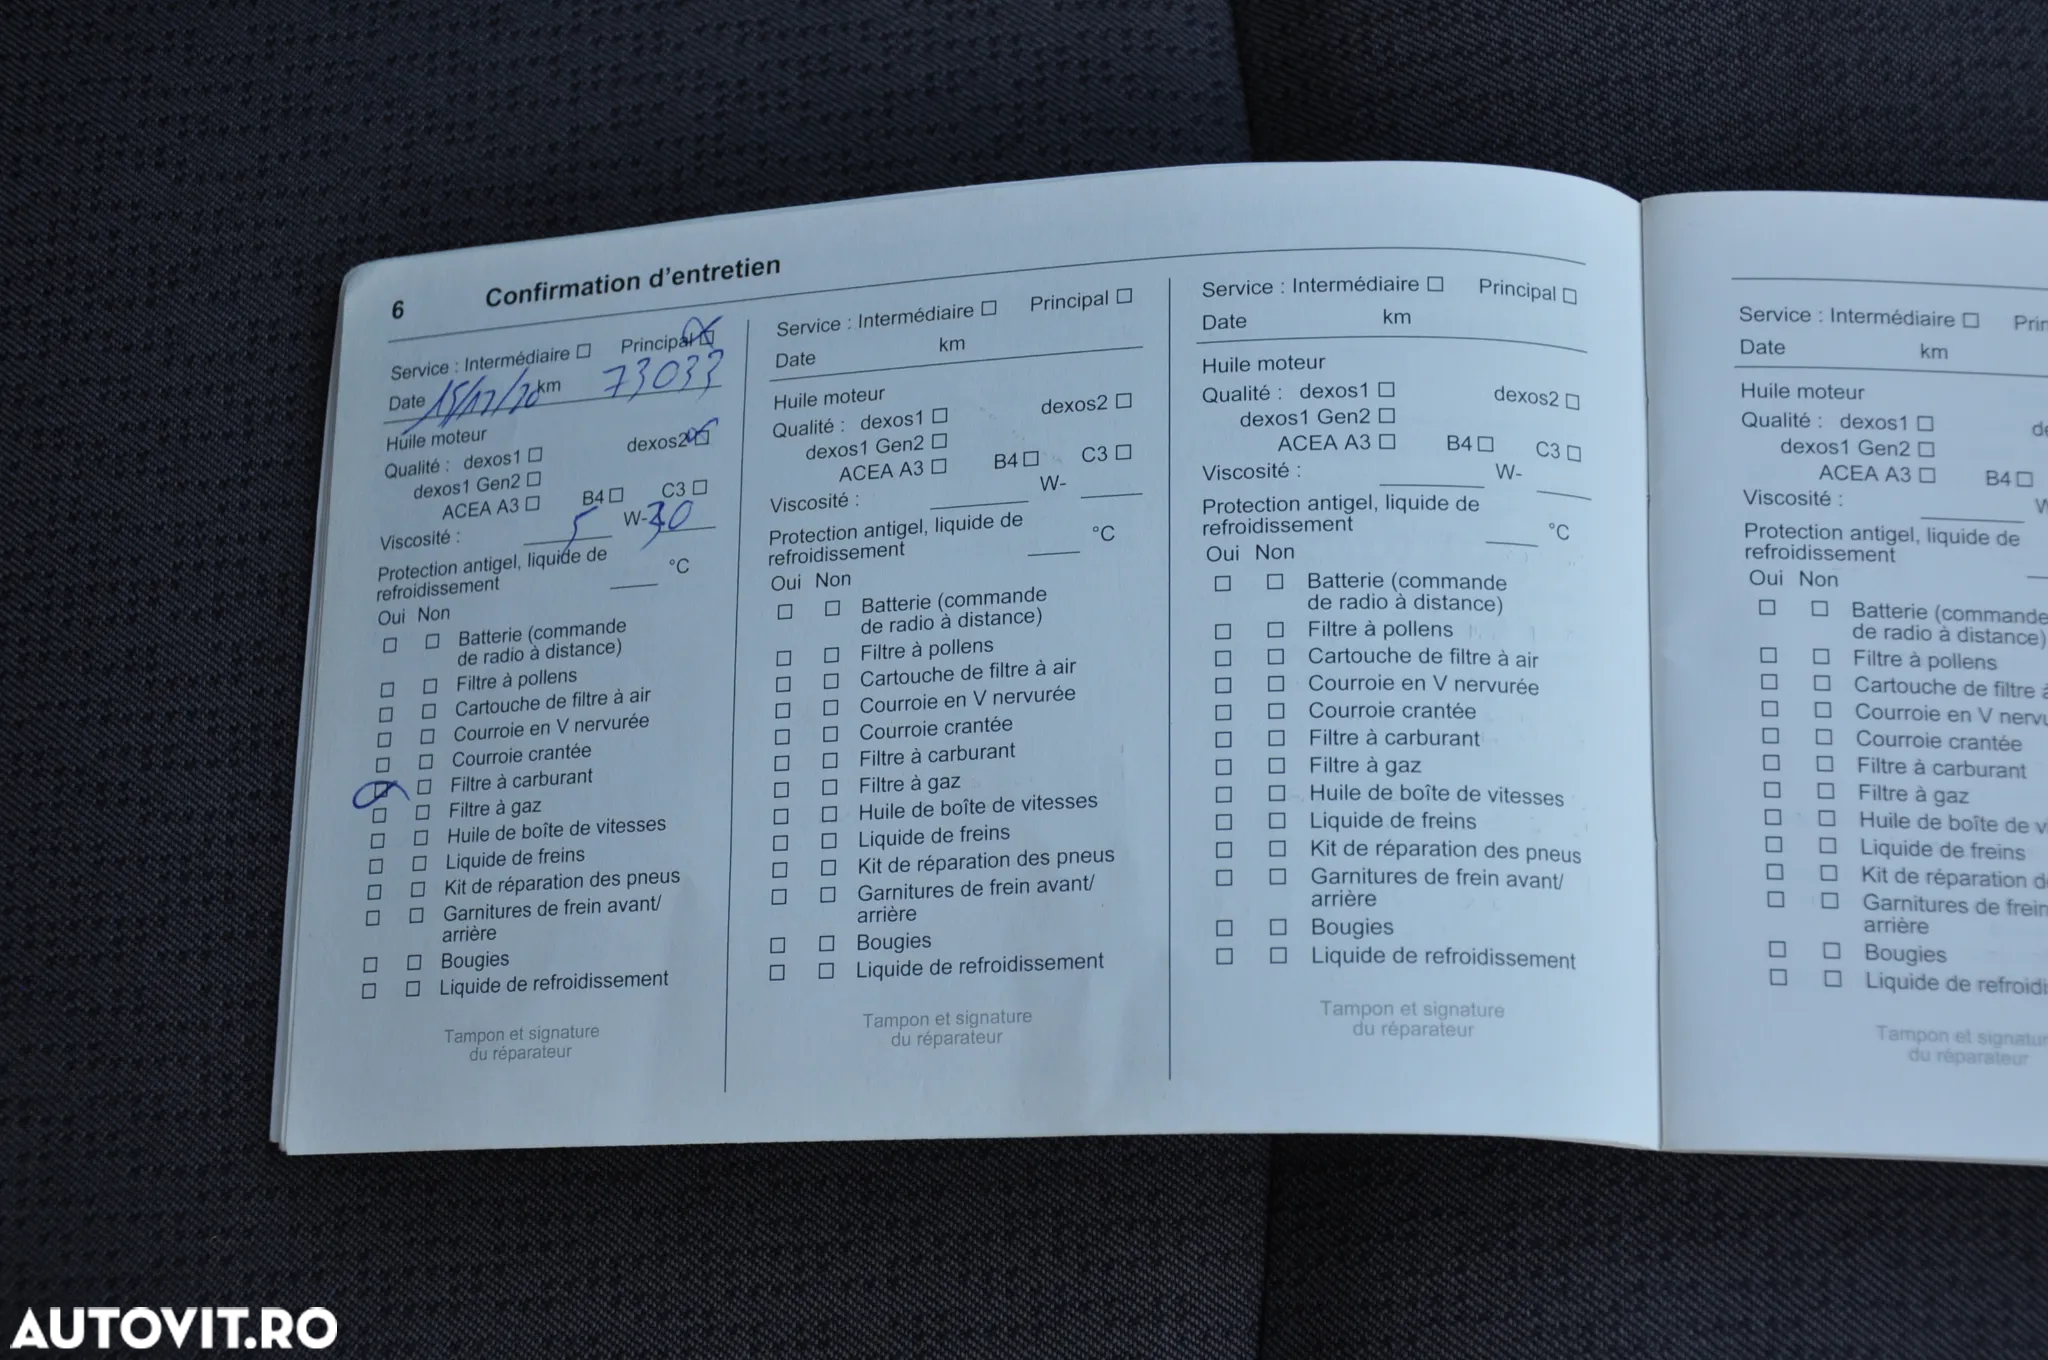 6 Confirmation d'entretien
Service : Intermédiaire ☐ Principal ☒
Date 15/12/20 km 73033
Huile moteur
Qualité : dexos1 ☐ dexos2 ☒
dexos1 Gen2 ☐
ACEA A3 ☐ B4 ☐ C3 ☐
Viscosité : 5 W-30
Protection antigel, liquide de
refroidissement ____ °C
Oui Non
☐ ☐ Batterie (commande
de radio à distance)
☐ ☐ Filtre à pollens
☐ ☐ Cartouche de filtre à air
☐ ☐ Courroie en V nervurée
☐ ☐ Courroie crantée
☒ ☐ Filtre à carburant
☐ ☐ Filtre à gaz
☐ ☐ Huile de boîte de vitesses
☐ ☐ Liquide de freins
☐ ☐ Kit de réparation des pneus
☐ ☐ Garnitures de frein avant/
arrière
☐ ☐ Bougies
☐ ☐ Liquide de refroidissement
Tampon et signature
du réparateur
Service : Intermédiaire ☐ Principal ☐
Date km
Huile moteur
Qualité : dexos1 ☐ dexos2 ☐
dexos1 Gen2 ☐
ACEA A3 ☐ B4 ☐ C3 ☐
Viscosité : ____ W- ____
Protection antigel, liquide de
refroidissement ____ °C
Oui Non
☐ ☐ Batterie (commande
de radio à distance)
☐ ☐ Filtre à pollens
☐ ☐ Cartouche de filtre à air
☐ ☐ Courroie en V nervurée
☐ ☐ Courroie crantée
☐ ☐ Filtre à carburant
☐ ☐ Filtre à gaz
☐ ☐ Huile de boîte de vitesses
☐ ☐ Liquide de freins
☐ ☐ Kit de réparation des pneus
☐ ☐ Garnitures de frein avant/
arrière
☐ ☐ Bougies
☐ ☐ Liquide de refroidissement
Tampon et signature
du réparateur
Service : Intermédiaire ☐ Principal ☐
Date km
Huile moteur
Qualité : dexos1 ☐ dexos2 ☐
dexos1 Gen2 ☐
ACEA A3 ☐ B4 ☐ C3 ☐
Viscosité : ____ W- ____
Protection antigel, liquide de
refroidissement ____ °C
Oui Non
☐ ☐ Batterie (commande
de radio à distance)
☐ ☐ Filtre à pollens
☐ ☐ Cartouche de filtre à air
☐ ☐ Courroie en V nervurée
☐ ☐ Courroie crantée
☐ ☐ Filtre à carburant
☐ ☐ Filtre à gaz
☐ ☐ Huile de boîte de vitesses
☐ ☐ Liquide de freins
☐ ☐ Kit de réparation des pneus
☐ ☐ Garnitures de frein avant/
arrière
☐ ☐ Bougies
☐ ☐ Liquide de refroidissement
Tampon et signature
du réparateur
Service : Intermédiaire ☐ Prin
Date km
Huile moteur
Qualité : dexos1 ☐ de
dexos1 Gen2 ☐
ACEA A3 ☐ B4 ☐
Viscosité : ____ W
Protection antigel, liquide de
refroidissement
Oui Non
☐ ☐ Batterie (commande
de radio à distance)
☐ ☐ Filtre à pollens
☐ ☐ Cartouche de filtre à
☐ ☐ Courroie en V nervu
☐ ☐ Courroie crantée
☐ ☐ Filtre à carburant
☐ ☐ Filtre à gaz
☐ ☐ Huile de boîte de v
☐ ☐ Liquide de freins
☐ ☐ Kit de réparation d
☐ ☐ Garnitures de frein
arrière
☐ ☐ Bougies
☐ ☐ Liquide de refroidi
Tampon et signatur
du réparateur
AUTOVIT.RO